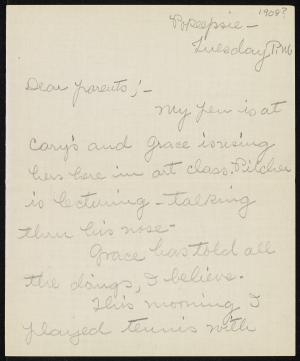 1908?
Po'keepsie -
Tuesday P.M.
Dear parents; -
My pen is at
Cary's and Grace is using
hers here in art class. Pitcher
is lecturing - talking
thru his nose -
Grace has told all
the doings, I believe.
This morning I
played tennis with